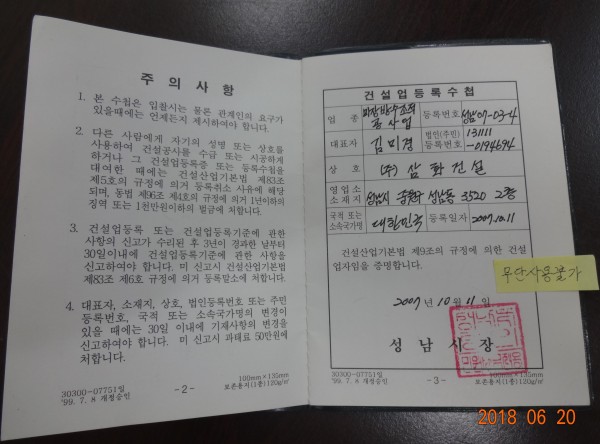 주 의 사 항
1. 본 수첩은 입찰시는 물론 관계인의 요구가
있을때에는 언제든지 제시하여야 합니다.
2. 다른 사람에게 자기의 성명 또는 상호를
사용하여 건설공사를 수급 또는 시공하게
하거나 그 건설업등록증 또는 등록수첩을
대여한 때에는 건설산업기본법 제83조
제5호의 규정에 의거 등록취소 사유에 해당
되며, 동법 제96조 제4호의 규정에 의거 1년이하의
징역 또는 1천만원이하의 벌금에 처합니다.
3. 건설업등록 또는 건설업등록기준에 관한
사항의 신고가 수리된 후 3년이 경과한 날부터
30일이내에 건설업등록기준에 관한 사항을
신고하여야 합니다. 미 신고시 건설산업기본법
제83조 제6호 규정에 의거 등록말소에 처합니다.
4. 대표자, 소재지, 상호, 법인등록번호 또는 주민
등록번호, 국적 또는 소속국가명의 변경이
있을 때에는 30일 이내에 기재사항의 변경을
신청하여야 합니다. 미 신고시 과태료 50만원에
처합니다.
30300-07751일
'99. 7. 8 개정승인
-2-
100mm×135mm
보존용지(1종)120g/㎡
건설업등록수첩
업 종 미장방수조적공사업 등록번호 성남07-03-4
대표자 김미경 법인(주민)등록번호 131111-0194694
상 호 (주) 삼화건설
영업소소재지 성남시 중원구 성남동 3520 2층
국적 또는소속국가명 대한민국 등록일자 2007.10.11
건설산업기본법 제9조의 규정에 의한 건설
업자임을 증명합니다.
무단사용불가
2007년 10월 11일
성 남 시 장
30300-07751일
'99. 7. 8 개정승인
-3-
100mm×135mm
보존용지(1종)120g/㎡
2018 06 20